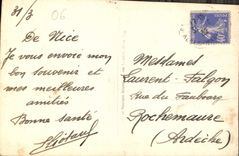 31/3
06
De Nice
Je vous envoie mon
bon souvenir et
mes meilleures
amitiés
Bonne santé
Mesdames
Laurent-Falgon
Rue du Faubourg
Rochemaure
(Ardèche)